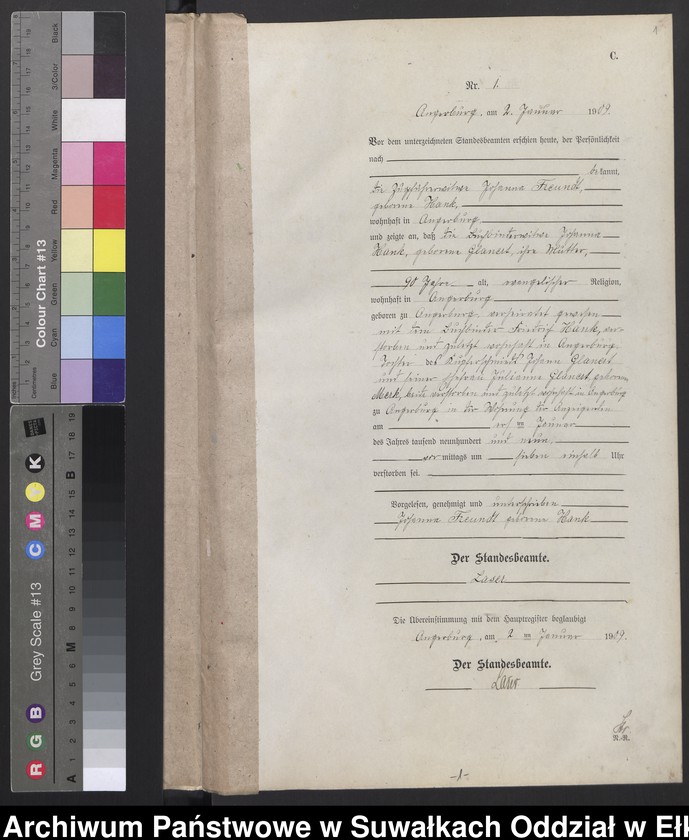 C.
Nr. 1.
Angerburg, am 2. Januar 1909.
Vor dem unterzeichneten Standesbeamten erschien heute, der Persönlichkeit
nach
bekannt,
die Johanna Freundt,
geborene Hank,
wohnhaft in Angerburg
und zeigte an, daß die Buchbinderwitwe Johanna
Hank, geborene Glanert, ihre Mutter,
90 Jahre alt, evangelischer Religion,
wohnhaft in Angerburg
geboren zu Angerburg, verheiratet gewesen
mit dem Buchbinder Friedrich Hank, ver-
storben und zuletzt wohnhaft in Angerburg,
Tochter des Johann Glanert
und seiner Ehefrau Julianne Glanert, geborene
Merk, beide verstorben und zuletzt wohnhaft in Angerburg
zu Angerburg in der Wohnung der Anzeigenden
am ersten Januar
des Jahres tausend neunhundert und neun,
vormittags um sieben einhalb Uhr
verstorben sei.
Vorgelesen, genehmigt und unterschrieben
Johanna Freundt geborene Hank
Der Standesbeamte.
Laser
Die Übereinstimmung mit dem Hauptregister beglaubigt
Angerburg, am 2ten Januar 1909.
Der Standesbeamte.
Laser
-1-
Colour Chart #13
Blue
Cyan
Green
Yellow
Red
Magenta
White
3/Color
Black
Centimetres
Inches
Grey Scale #13
R G B
C M Y K
A 1 2 3 4 5 6 M 8 9 10 11 12 13 14 15 B 17 18 19
Archiwum Państwowe w Suwałkach Oddział w Eł